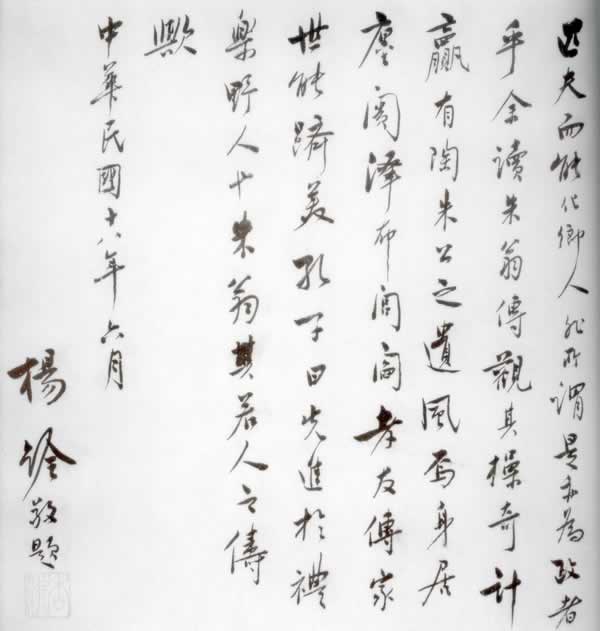 匹夫而能化鄉人非所謂是亦為政者
乎余讀朱翁傳觀其操奇計
贏有陶朱公之遺風焉身居
廛闠澤布閭閻孝友傳家
世能躋美孔子曰先進於禮
樂野人也朱翁其若人之儔
歟
中華民國十八年六月
楊銓敬題